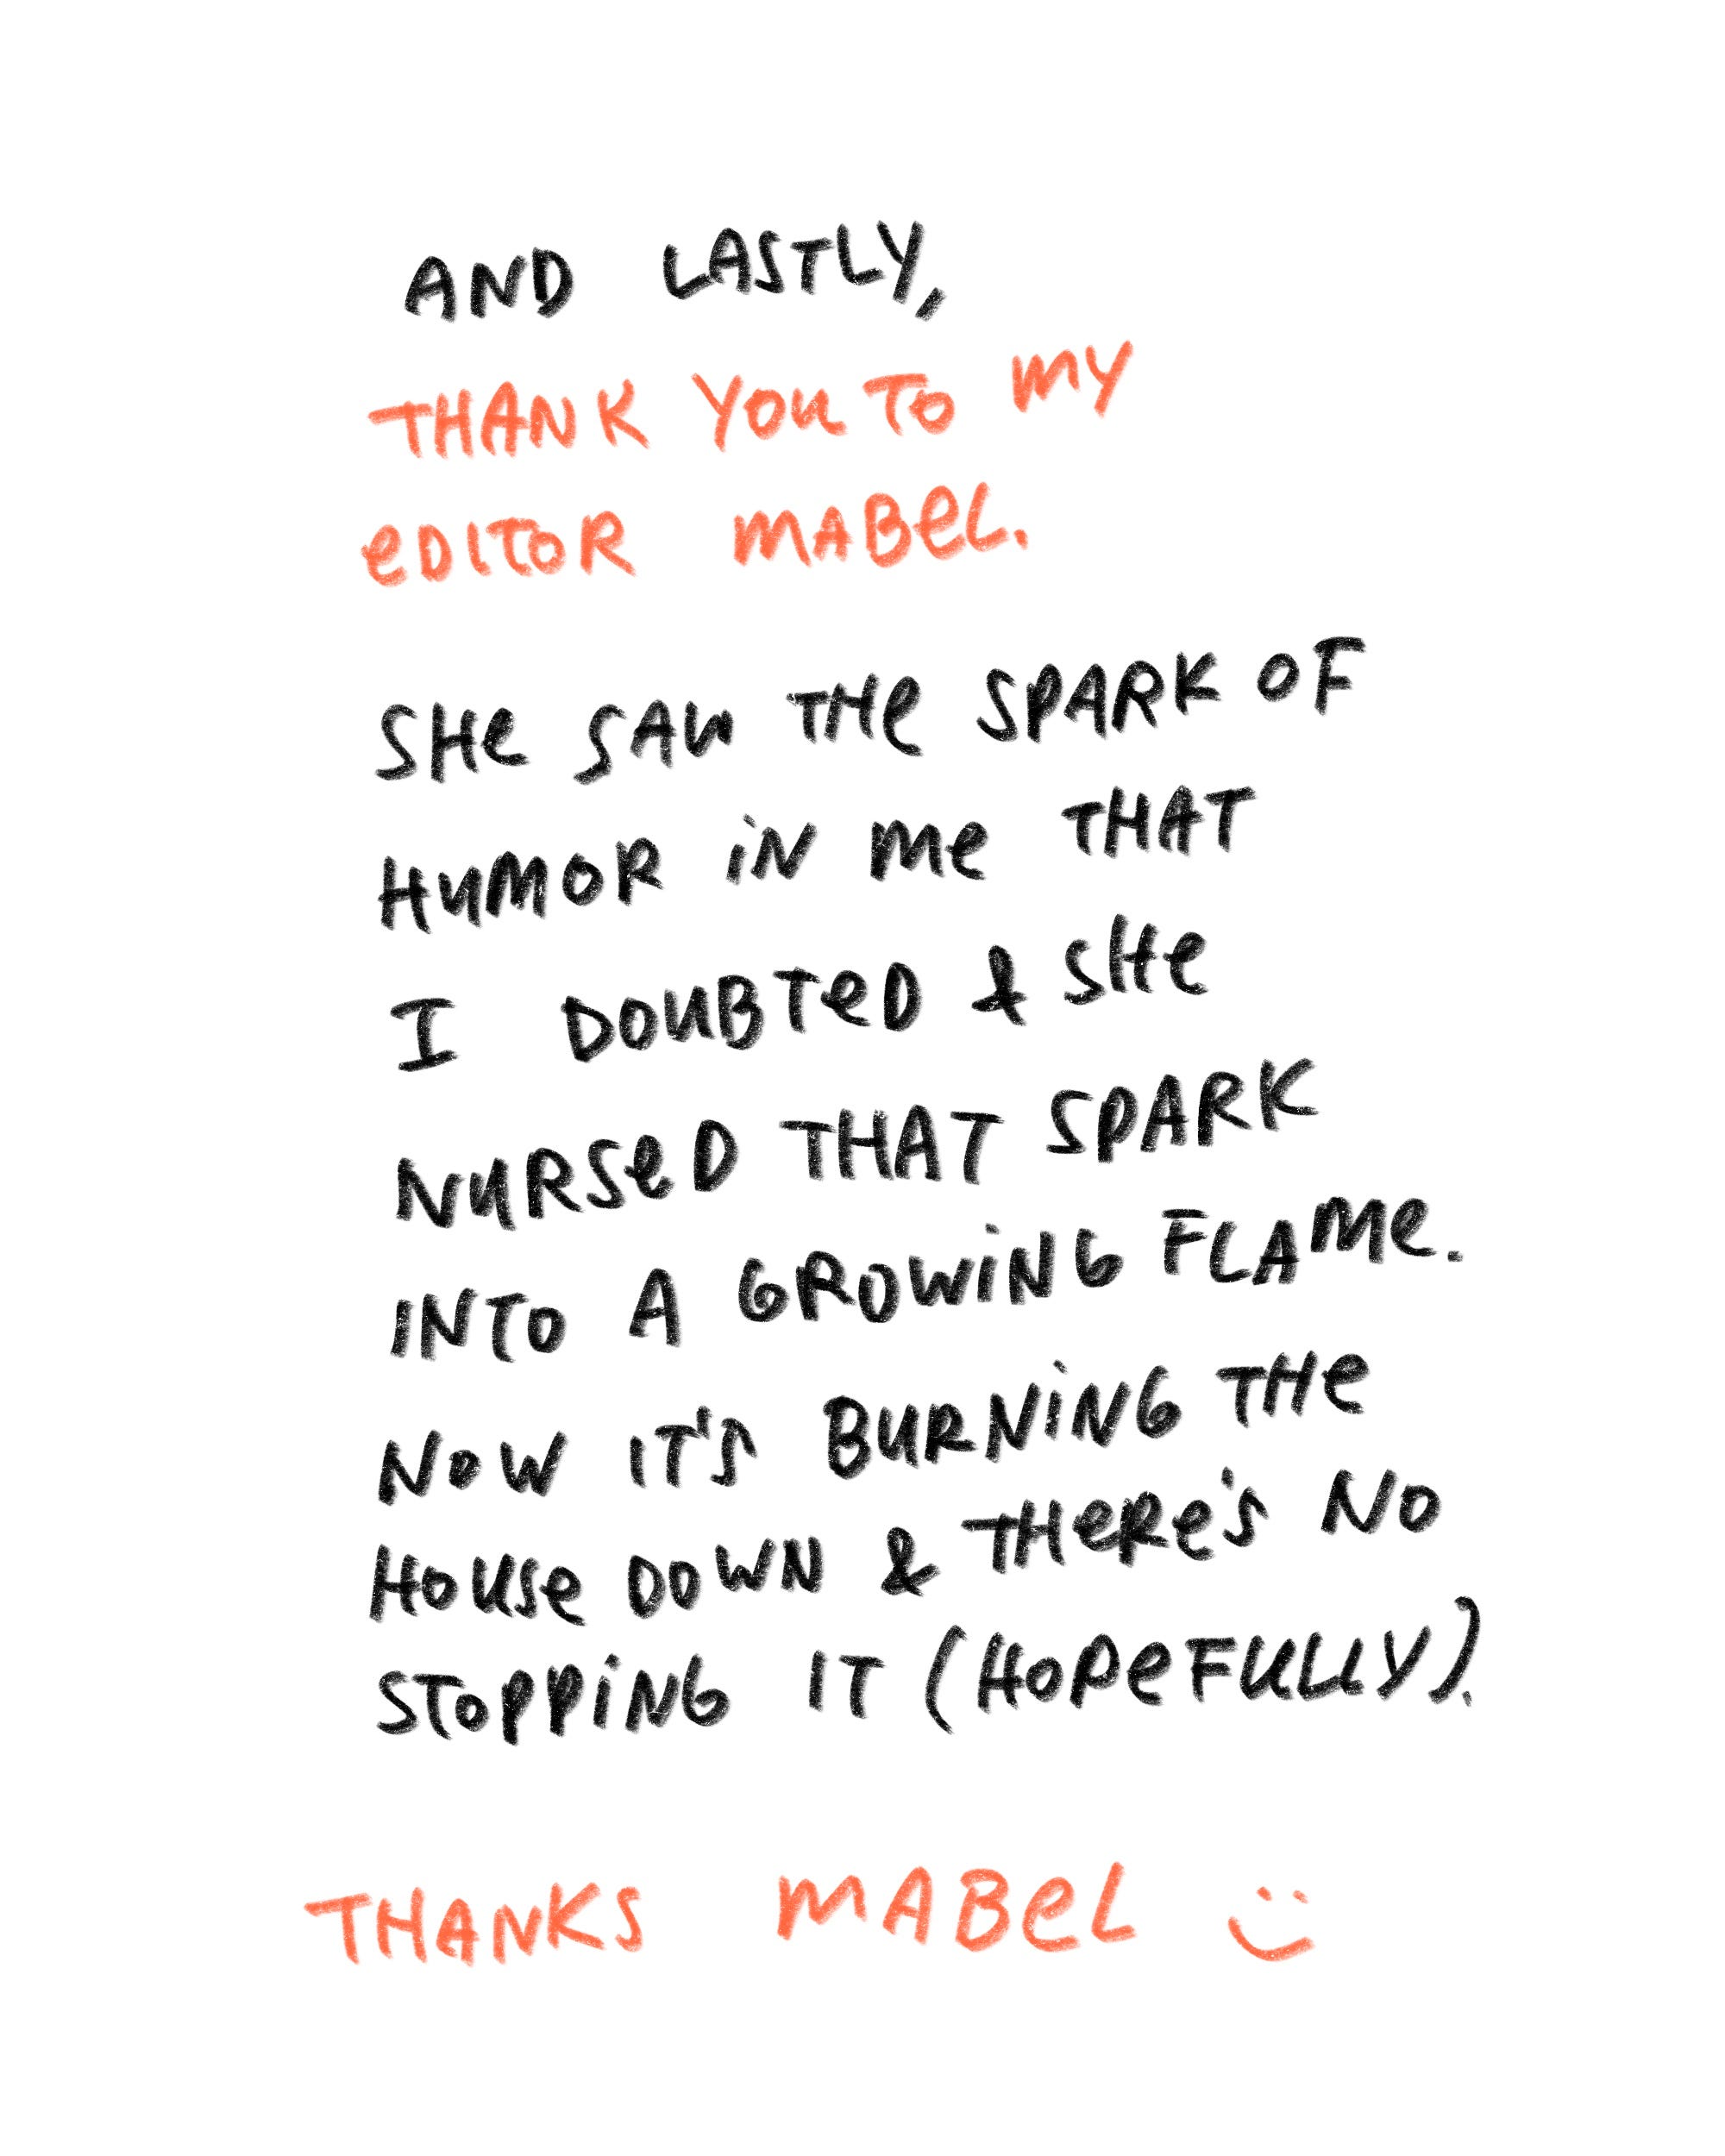 AND LASTLY,
THANK YOU TO MY
EDITOR MABEL.
SHE SAW THE SPARK OF
HUMOR IN ME THAT
I DOUBTED & SHE
NURSED THAT SPARK
INTO A GROWING FLAME.
NOW IT'S BURNING THE
HOUSE DOWN & THERE'S NO
STOPPING IT (HOPEFULLY).
THANKS MABEL :)